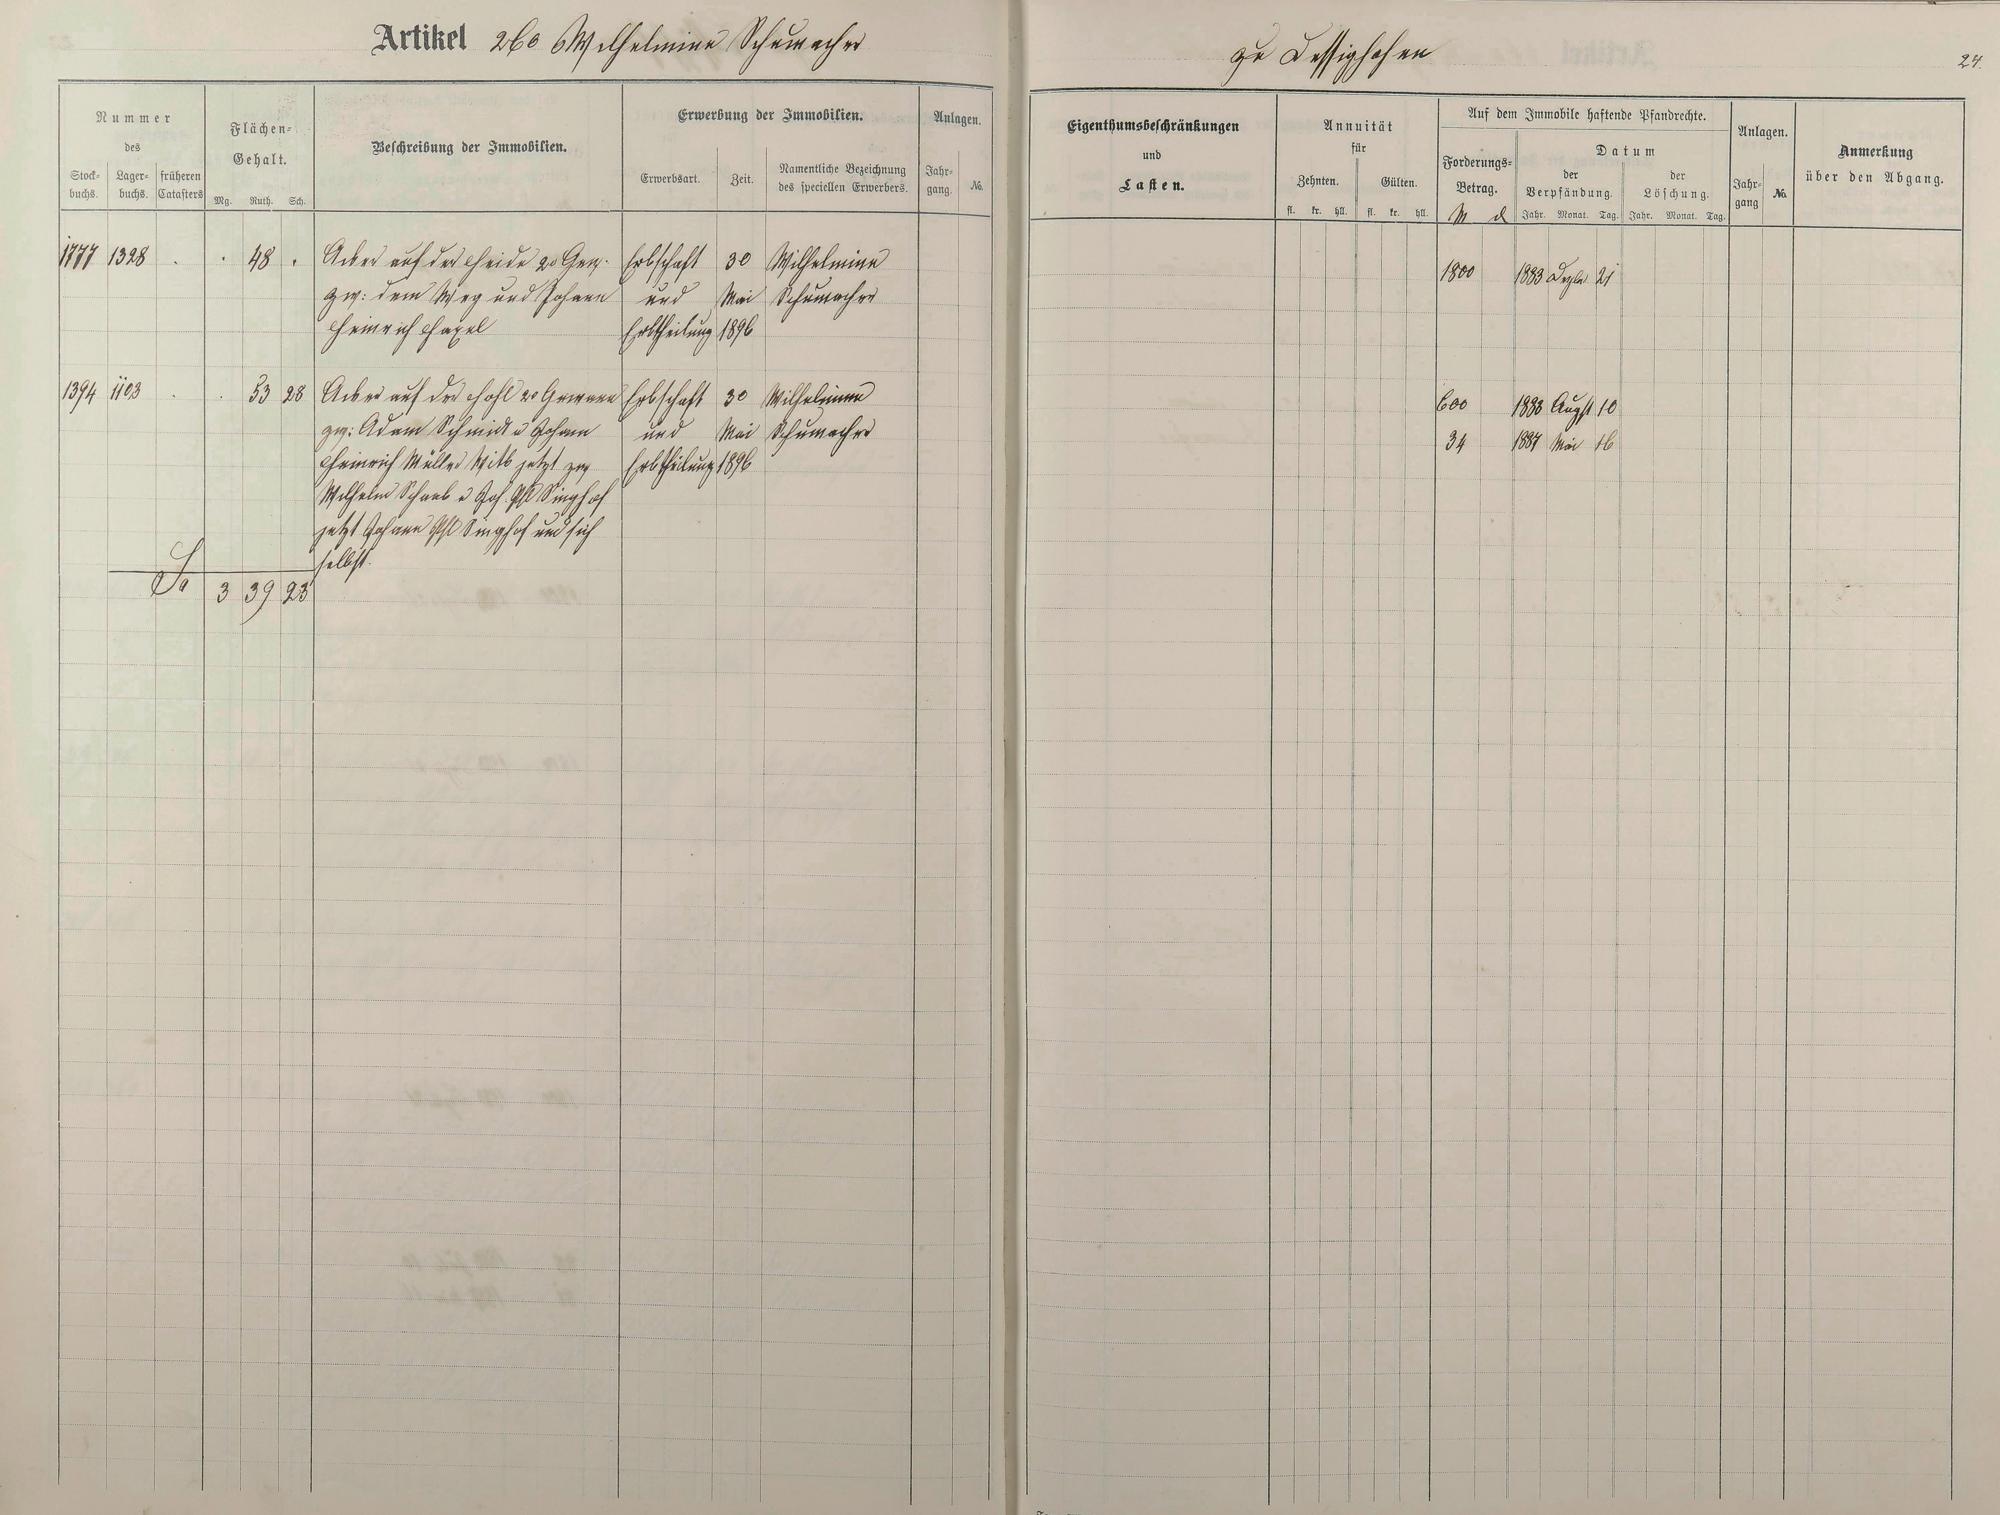 Artikel 260 Wilhelmine Schumacher
zu Dessighofen
24.
Nummer
des
Stock-
buchs.
Lager-
buchs.
früheren
Catasters
Flächen-
Gehalt.
Mg. Ruth. Sch.
Beschreibung der Immobilien.
Erwerbung der Immobilien.
Erwerbsart.
Zeit.
Namentliche Bezeichnung
des speciellen Erwerbers.
Anlagen.
Jahr-
gang.
No.
Eigenthumsbeschränkungen
und
Lasten.
Annuität
für
Zehnten.
Gülten.
fl. kr. hll. fl. kr. hll.
Auf dem Immobile haftende Pfandrechte.
Forderungs-
Betrag.
M d
Datum
der
Verpfändung.
Jahr. Monat. Tag.
der
Löschung.
Jahr. Monat. Tag.
Anlagen.
Jahr-
gang
No.
Anmerkung
über den Abgang.
1777 1328 . . 48 . Acker auf der Heide 2r Gew. Erbschaft 30 Wilhelmine
zw: dem Weg und Johann und Mai Schumacher
Heinrich Hasel Erbtheilung 1896
1800 1883 Dezbr 21
1394 1103 . . 53 28 Acker auf der Hohl 2r Gewann Erbschaft 30 Wilhelmine
zw: Adam Schmidt u Johann und Mai Schumacher
Heinrich Müller Witb jetzt zw Erbtheilung 1896
Wilhelm Schaab u Joh. Phl Singhof
jetzt Johann Phl Singhof und sich
selbst.
600 1883 Augst 10
34 1887 Mai 16
Sa 3 39 23